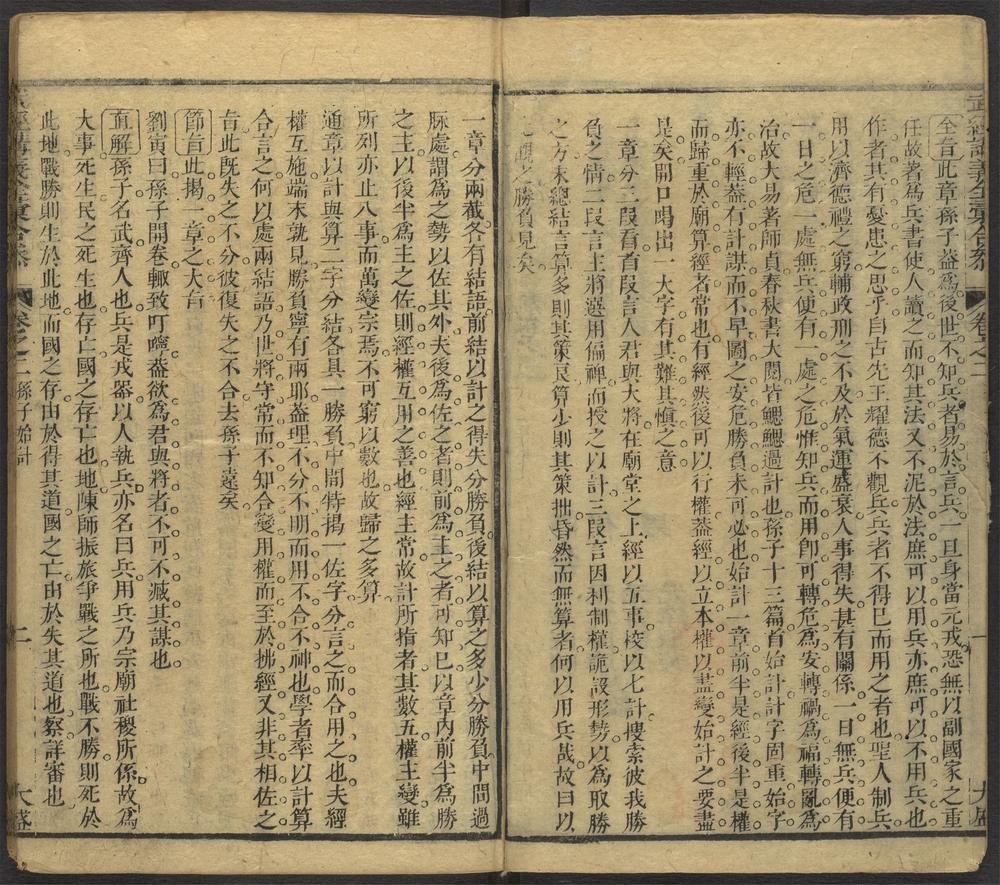 武經講義全彙合參 卷之二
一
大盛
全旨此章孫子蓋爲後世不知兵者易於言兵一旦身當元戎恐無以副國家之重
任故著爲兵書使人讀之而知其法又不泥於法庶可以用兵亦庶可以不用兵也
作者其有憂患之思乎自古先王耀德不觀兵兵者不得已而用之者也聖人制兵
用以濟德禮之窮輔政刑之不及於氣運盛衰人事得失甚有關係一日無兵便有
一日之危一處無兵便有一處之危惟知兵而用卽可轉危爲安轉禍爲福轉亂爲
治故大易著師貞春秋書大閱皆鰓鰓過計也孫子十三篇首始計計字固重始字
亦不輕蓋有計謀而不早圖之安危勝負未可必也始計一章前半是經後半是權
而歸重於廟算經者常也有經然後可以行權蓋經以立本權以盡變始計之要盡
是矣開口喝出一大字有其難其愼之意
一章分三段看首段言人君與大將在廟堂之上經以五事校以七計搜索彼我勝
負之情二段言主將選用偏裨而授之以計三段言因利制權詭設形勢以爲取勝
之方末總結言算多則其策良算少則其策拙昏然而無算者何以用兵哉故曰以
此觀之勝負見矣
一章分兩截各有結語前結以計之得失分勝負後結以算之多少分勝負中間過
脉處謂爲之勢以佐其外夫後爲佐之者則前爲主之者可知已以章內前半爲勝
之主以後半爲主之佐則經權互用之善也經主常故計所指者其數五權主變雖
所列亦止八事而萬變宗焉不可窮以數也故歸之多算
通章以計與算二字分結各具一勝負中間特揭一佐字分言之而合用之也夫經
權互施端末孰見勝負寧有兩耶蓋理不分不明而用不合不神也學者率以計算
合言之何以處兩結語乃世將守常而不知合變用權而至於拂經又非其相佐之
旨此旣失之不分彼復失之不合去孫子遠矣
節旨此揭一章之大旨
劉寅曰孫子開卷輒致叮嚀蓋欲爲君與將者不可不臧其謀也
直解孫子名武齊人也兵是戎器以人執兵亦名曰兵用兵乃宗廟社稷所係故爲
大事死生民之死生也存亡國之存亡也地陳師振旅爭戰之所也戰不勝則死於
此地戰勝則生於此地而國之存由於得其道國之亡由於失其道也察詳審也
武經講義全彙合參 卷之二 孫子始計
二
大盛